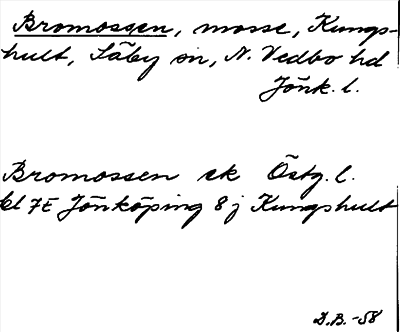 Bromossen, mosse, Kungs-
hult, Säby sn, N. Vedbo hd
Jönk. l.
Bromossen ek Östg. l.
bl 7E Jönköping 8 j Kungshult
D.B. -58